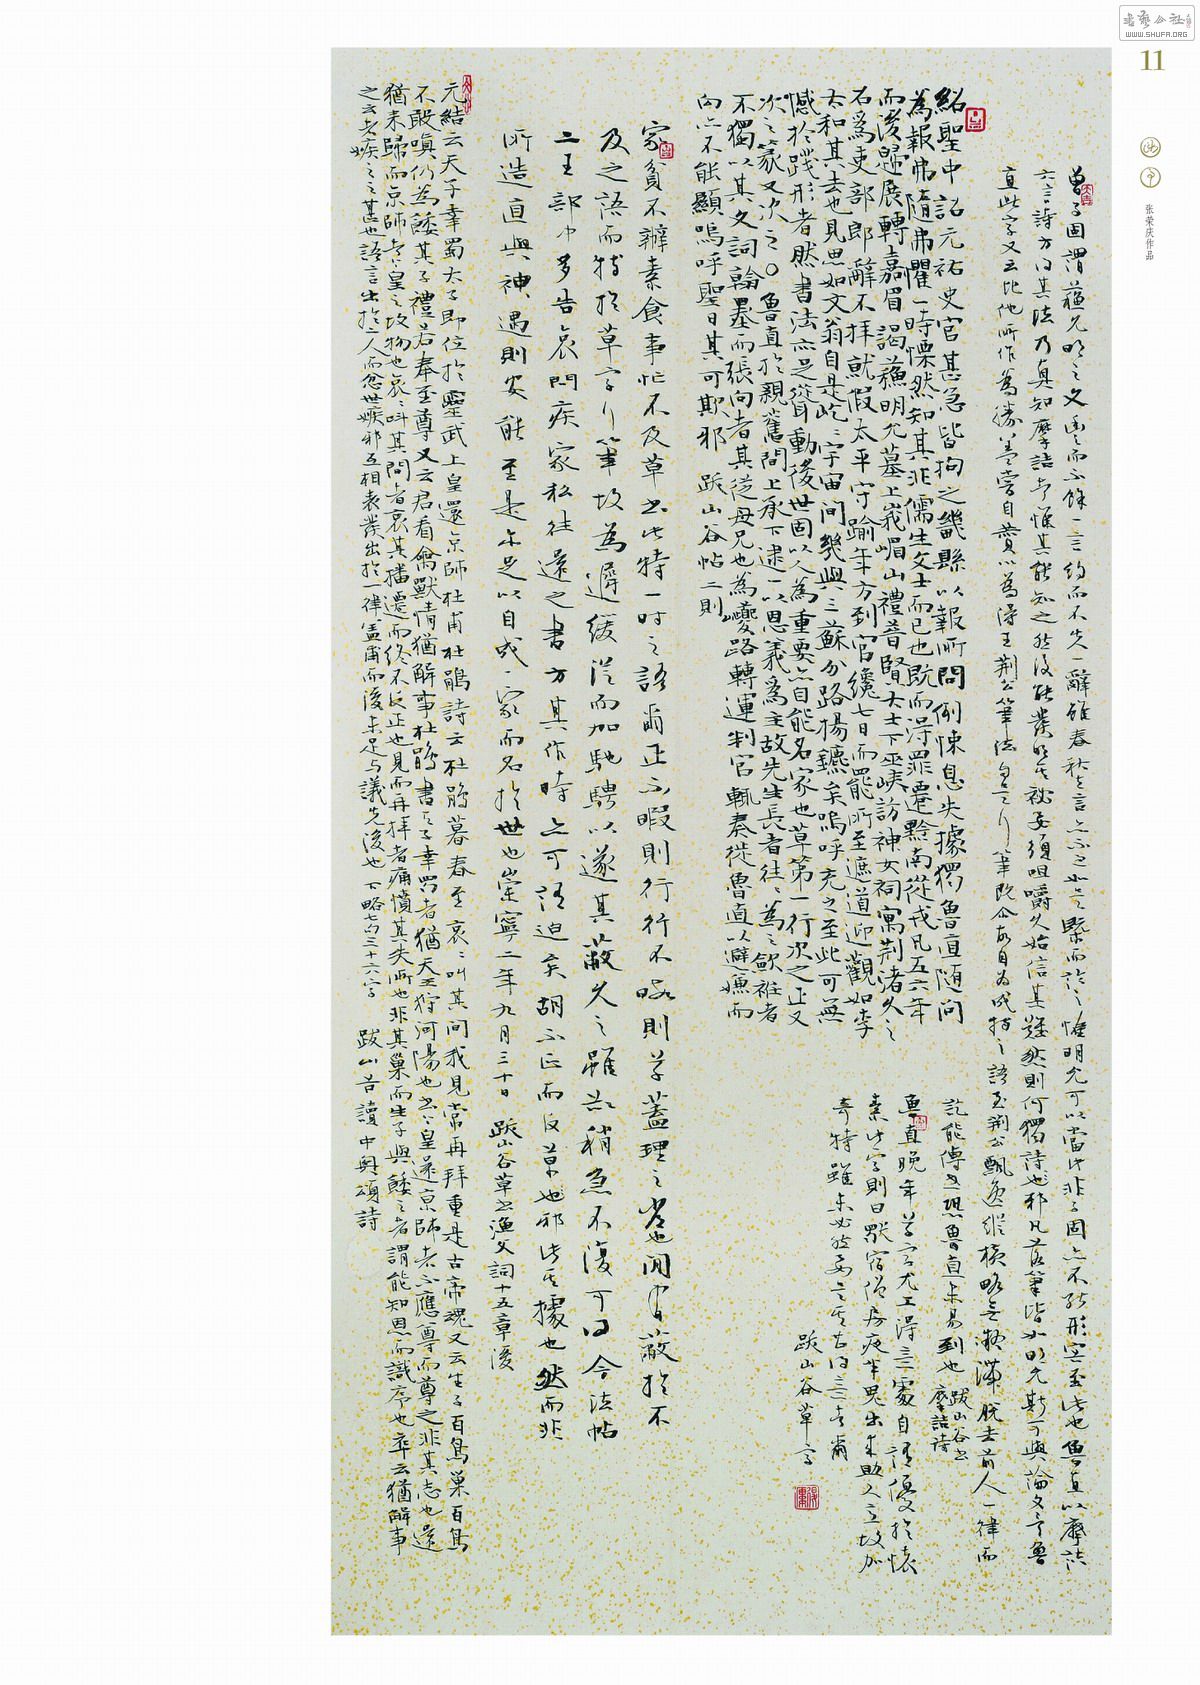 书艺公社
WWW.SHUFA.ORG
11
张荣庆作品
曾子固謂蘇明允之文
六言詩方得其法乃真知摩詰者惟其能知之然後能發明其秘要須咀嚼久始信其難然則何獨詩也邪凡落筆皆如明允斯可與論文言魯
直此字又云比他所作為勝蓋嘗自贊以為得王荊公筆法自是行筆既爾故自為成特之語至荊公飄逸縱橫略無凝滯脫去前人一律而
訖能傳也恐魯直未易到也 跋山谷書摩詰詩
紹聖中詔元祐史官甚急皆拘之畿縣以報所問例悚息失據獨魯直隨問
為報弗隨弗懼一時慄然知其非儒生文士而已也既而得罪遷黔南從戎凡五六年
而後歸展轉嘉眉謁蘇明允墓上峨嵋山禮普賢大士下巫峽訪神女祠寓荊渚久之
召為吏部郎辭不拜就假太平守踰年方到官纔七日而罷所至遮道迎觀如李
太和其去也見思如文翁自是屹屹宇宙間幾與三蘇分路揚鑣矣嗚呼充之至此可無
憾於踐形者然書法亦足聳動後世固以人為重要亦自能名家也草第一行次之正又
次之篆又次之魯直於親舊間上承下逮一以恩義為主故先生長者往往為之斂衽者
不獨以其文詞翰墨而張向者其從母兄也為夔路轉運判官輒奏徙魯直以避嫌而
向亦不能顯嗚呼聖日其可欺邪 跋山谷帖二則
魯直晚年草字尤工得意處自謂優於懷
素此字則曰獸宿僧房夜半鬼出來助人意故加
奇特雖未必然要之其甚得意者爾
跋山谷草字
家貧不辦素食事忙不及草書此特一時之語爾正不暇則行行不暇則草蓋理之常也間有蔽於不
及之語而特於草字行筆故為遲緩從而加馳騁以遂其蔽久之雖欲稍急不復可得今法帖
二王部中多告哀問疾家私往還之書方其作時亦可謂迫矣胡不正而反草也邪此其據也然而非
所造直與神遇則安能至是亦足以自成一家而名於世也崇寧二年九月三十日 跋山谷草書漁父詞十五章後
元結云天子幸蜀太子即位於靈武上皇還京師杜甫杜鵑詩云杜鵑暮春至哀哀叫其間我見常再拜重是古帝魂又云生子百鳥巢百鳥
不敢嗔仍為餧其子禮若奉至尊又云君看禽獸情猶解事杜鵑書天子幸蜀者猶天王狩河陽也書上皇還京師者不應尊而尊之非其志也還
猶未歸而京師者上皇之故物也哀哀叫其間者哀其播遷而終不反正也見而再拜者痛憤其失所也非其巢而生子與餧之者謂能知恩而識序也卒云猶解事
之云者嫉之之甚也語言出於二人而忿世嫉邪互相表發出於一律孟甫而後未足與議先後也 下略七百三十六字 跋山谷讀中興頌詩